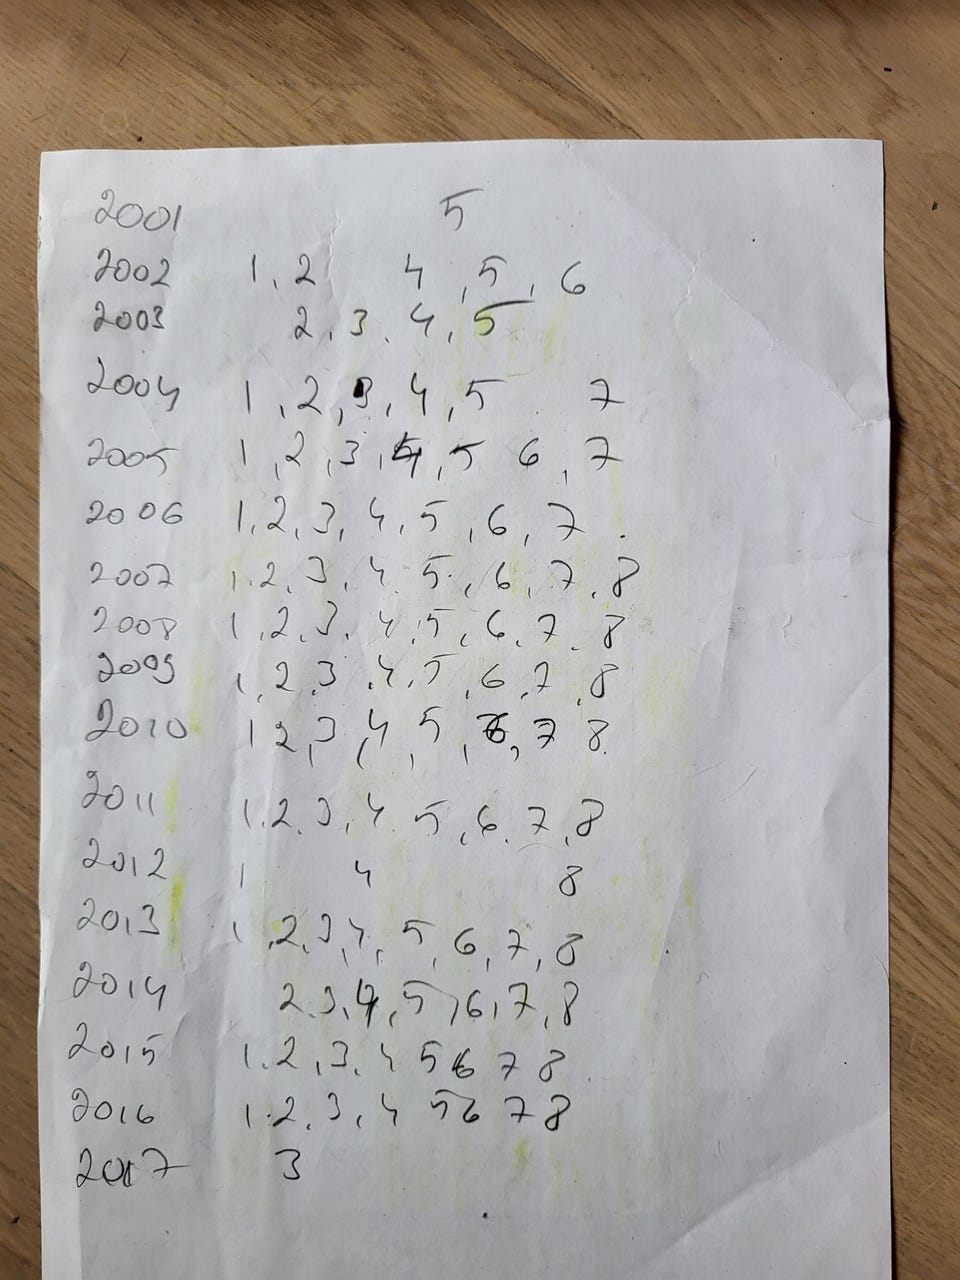 2001 5
2002 1, 2 4, 5, 6
2003 2, 3, 4, 5
2004 1, 2, 3, 4, 5 7
2005 1, 2, 3, 4, 5 6, 7
2006 1, 2, 3, 4, 5, 6, 7
2007 1, 2, 3, 4, 5, 6, 7, 8
2008 1, 2, 3, 4, 5, 6, 7, 8
2009 1, 2, 3, 4, 5, 6, 7, 8
2010 1 2, 3, 4, 5, 6, 7 8
2011 1, 2, 3, 4, 5, 6, 7, 8
2012 1 4 8
2013 1, 2, 3, 4, 5, 6, 7, 8
2014 2, 3, 4, 5, 6, 7, 8
2015 1, 2, 3, 4 5 6 7 8
2016 1, 2, 3, 4 5 6 7 8
2017 3